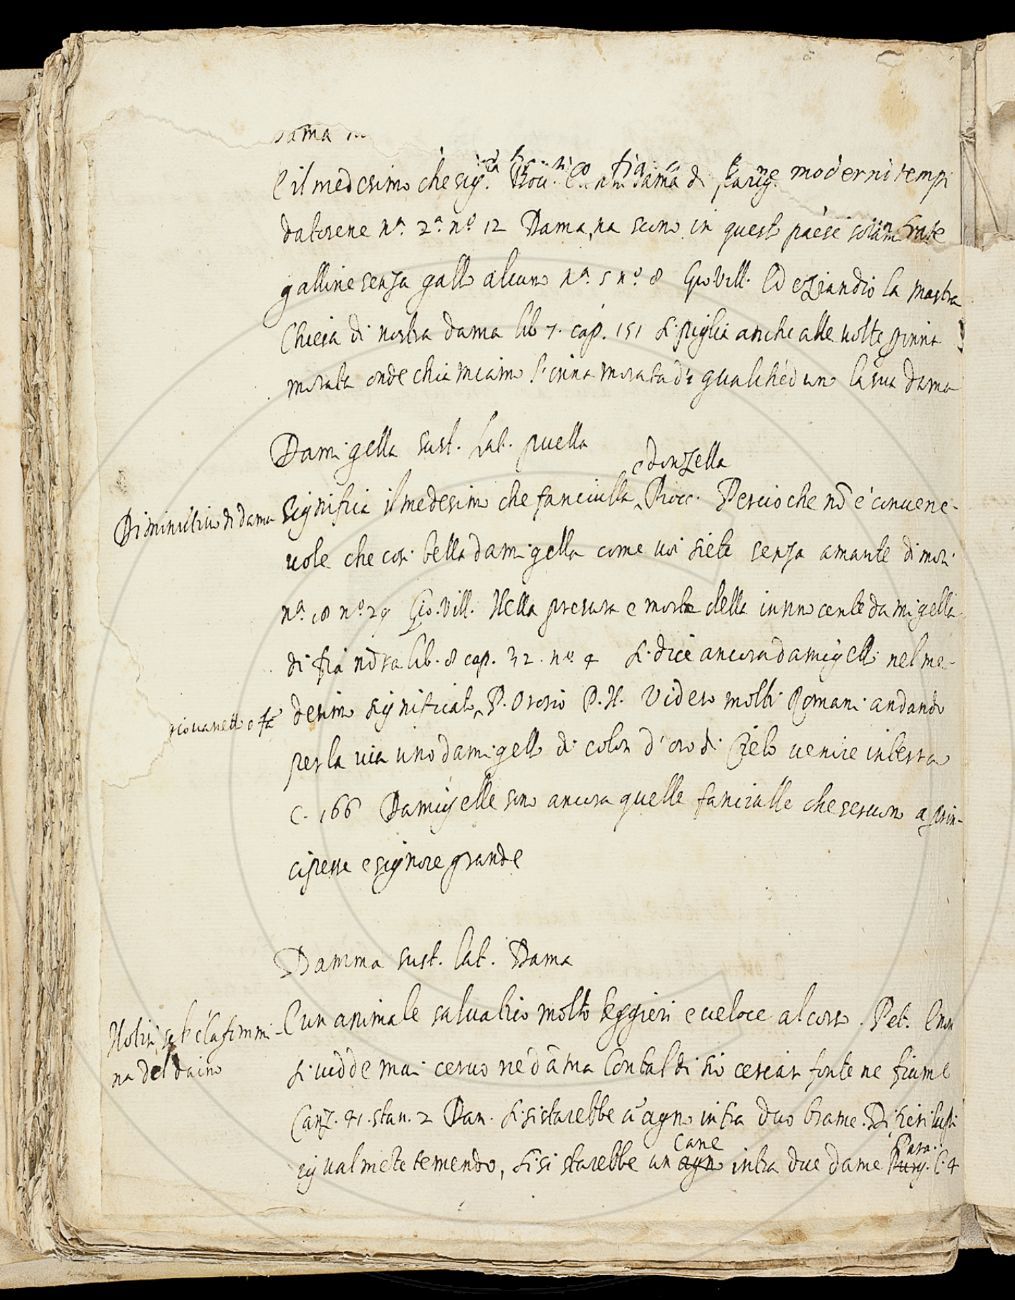 Dama
E il medesimo che sig.ra Bocc. dama di Parigi moderni tempi
datorene n.a 2.a n.o 12 Dama, na sono in quest paese solam.
galline senza gallo alcuno n.a 5 n.o 8 Gio Vill. Ed eziandio la mastra
Chiesa di nostra dama lib 7. cap. 151 Si piglia anche alle volte
morata onde chiamiamo l'innamorata di qualched'uno la sua dama
Damigella sust. Lat. puella
Diminutivo di dama
e donzella
Significa il medesimo che fanciulla Bocc. Percioche nõ è convene-
vole che cosi bella damigella come voi siete senza amante dimori
n.a 18 n.o 29 Gio. Vill. Nella presura e morte della innocente damigella
di fiandra lib. 8 cap. 32. n.o 4 Si dice ancora damigello nel me-
giovanetto o
desimo significato P. Orosio P. N. Videro molti Romani andando
per la via uno damigello di color d'oro di Cielo venire in terra
C. 166 Damigelle sono ancora quelle fanciulle che servono a prin-
cipesse e signore grande
Damma sust. lat. Dama
E un animale salvatico molto leggieri e veloce al corso. Pet. E non
Noti: è la femmi-
na del daino
si vidde mai cervo ne dãma Con tal disio cercar fonte ne fiume
Canz. 41. stan. 2 Dan. Si si starebbe u' agno intra duo brame Di fieri lupi
Cane
Para.
igualmẽte temendo, Si si starebbe un agno intra due dame Purg. C. 4